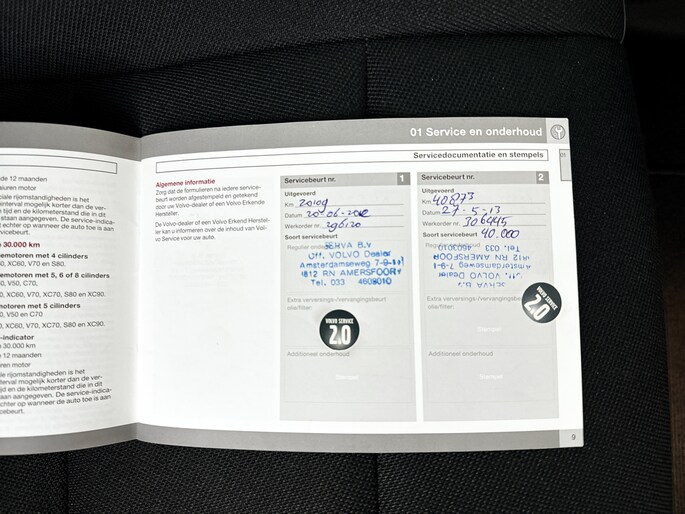 01 Service en onderhoud
Servicedocumentatie en stempels
01
de 12 maanden
suren motor
le rijomstandigheden is het
nterval mogelijk korter dan de ver-
tijd en de kilometerstand die in dit
staan aangegeven. De service-indica-
chter op wanneer de auto toe is aan
vicebeurt.
30.000 km
emotoren met 4 cilinders
0, XC60, V70 en S80.
emotoren met 5, 6 of 8 cilinders
0, V50, C70,
XC60, V70, XC70, S80 en XC90.
motoren met 5 cilinders
0, V50 en C70
XC60, V70, XC70, S80 en XC90.
-indicator
30.000 km
12 maanden
ren motor
e rijomstandigheden is het
terval mogelijk korter dan de ver-
ijd en de kilometerstand die in dit
aan aangegeven. De service-indica-
chter op wanneer de auto toe is aan
cebeurt.
Algemene informatie
Zorg dat de formulieren na iedere service-
beurt worden afgestempeld en getekend
door uw Volvo-dealer of een Volvo Erkende
Hersteller.
De Volvo-dealer of een Volvo Erkend Herstel-
ler kan u informeren over de inhoud van Vol-
vo Service voor uw auto.
Servicebeurt nr. 1
Uitgevoerd
Km 20109
Datum 20-06-2012
Werkorder nr. 296120
Soort servicebeurt
Regulier
SERVA B.V
Off. VOLVO Dealer
Amsterdamseweg 7-9-11
1812 RN AMERSFOORT
Tel. 033 4603010
Extra verversings-/vervangingsbeurt
olie/filter:
VOLVO SERVICE
2.0
Additioneel onderhoud
Stempel
Servicebeurt nr. 2
Uitgevoerd
Km 40873
Datum 27-5-13
Werkorder nr. 306445
Soort servicebeurt 40.000
Regulier
SERVA B.V
Off. VOLVO Dealer
Amsterdamseweg 7-9-1
1812 RN AMERSFOOR
Tel. 033 4603010
Extra verversings-/vervangingsbeurt
olie/filter:
Stempel
VOLVO SERVICE
2.0
Additioneel onderhoud
Stempel
9